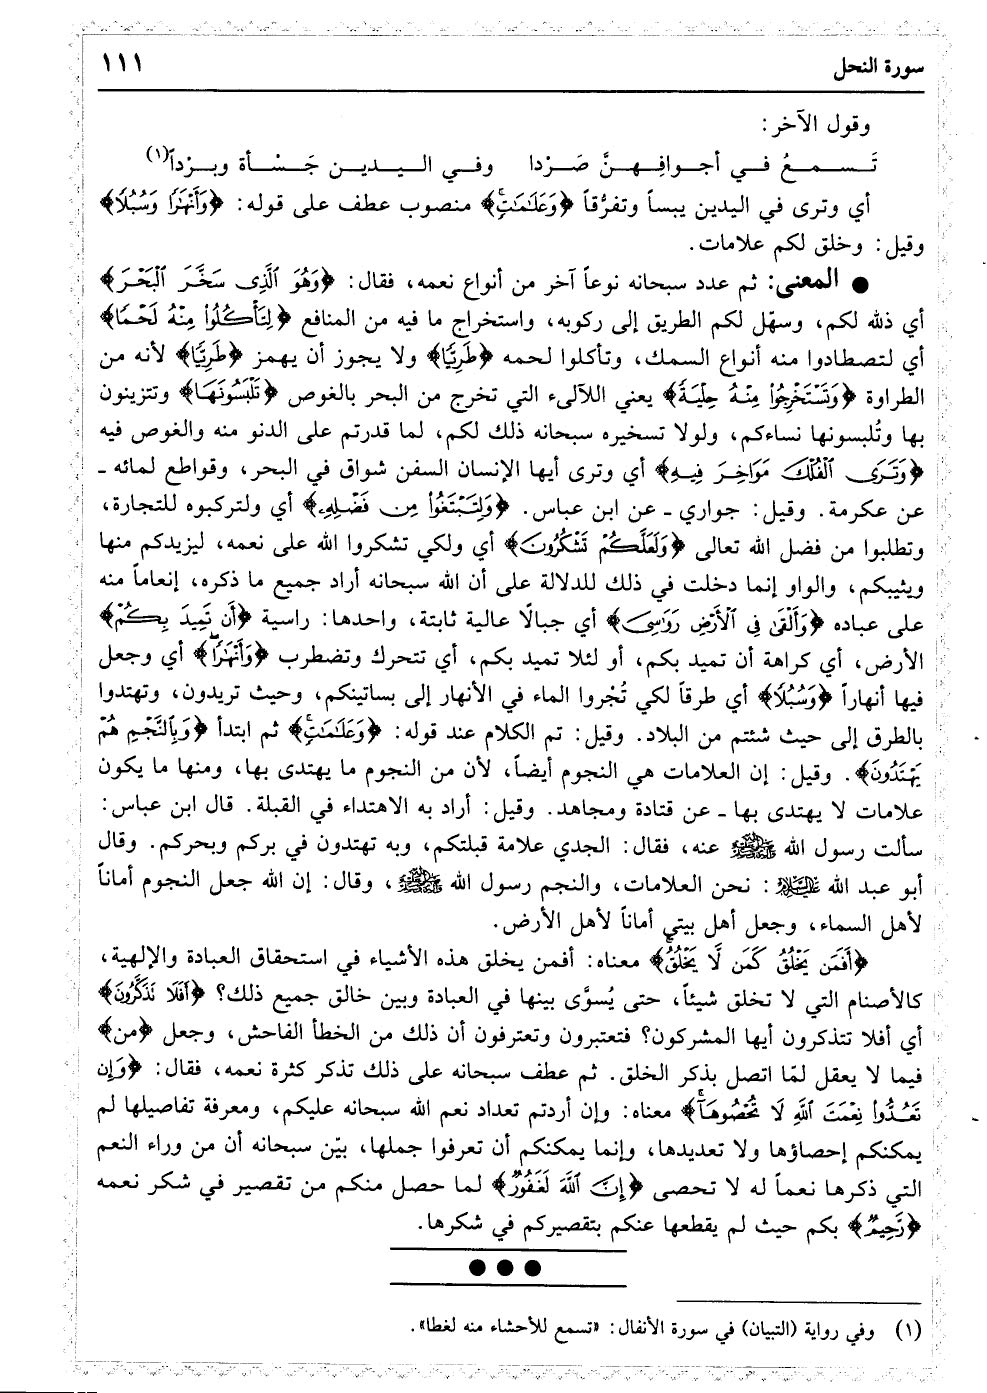 سورة النحل
١١١
وقول الآخر:
تَسمعُ في أجوافِهنَّ صَرْدا وفي اليدين جَسْأة وبرْداً(١)
أي وترى في اليدين يبساً وتفرُّقاً ﴿وَعَلَٰمَٰتٍ﴾ منصوب عطف على قوله: ﴿وَأَنْهَٰرًا وَسُبُلًا﴾
وقيل: وخلق لكم علامات.
● المعنى: ثم عدد سبحانه نوعاً آخر من أنواع نعمه، فقال: ﴿وَهُوَ ٱلَّذِى سَخَّرَ ٱلْبَحْرَ﴾
أي ذلله لكم، وسهّل لكم الطريق إلى ركوبه، واستخراج ما فيه من المنافع ﴿لِتَأْكُلُوا۟ مِنْهُ لَحْمًا﴾
أي لتصطادوا منه أنواع السمك، وتأكلوا لحمه ﴿طَرِيًّا﴾ ولا يجوز أن يهمز ﴿طَرِيًّا﴾ لأنه من
الطراوة ﴿وَتَسْتَخْرِجُوا۟ مِنْهُ حِلْيَةً﴾ يعني اللآلىء التي تخرج من البحر بالغوص ﴿تَلْبَسُونَهَا﴾ وتتزينون
بها وتُلبسونها نساءكم، ولولا تسخيره سبحانه ذلك لكم، لما قدرتم على الدنو منه والغوص فيه
﴿وَتَرَى ٱلْفُلْكَ مَوَاخِرَ فِيهِ﴾ أي وترى أيها الإنسان السفن شواق في البحر، وقواطع لمائه ـ
عن عكرمة. وقيل: جواري ـ عن ابن عباس. ﴿وَلِتَبْتَغُوا۟ مِن فَضْلِهِۦ﴾ أي ولتركبوه للتجارة،
وتطلبوا من فضل الله تعالى ﴿وَلَعَلَّكُمْ تَشْكُرُونَ﴾ أي ولكي تشكروا الله على نعمه، ليزيدكم منها
ويثيبكم، والواو إنما دخلت في ذلك للدلالة على أن الله سبحانه أراد جميع ما ذكره، إنعاماً منه
على عباده ﴿وَأَلْقَىٰ فِى ٱلْأَرْضِ رَوَٰسِىَ﴾ أي جبالًا عالية ثابتة، واحدها: راسية ﴿أَن تَمِيدَ بِكُمْ﴾
الأرض، أي كراهة أن تميد بكم، أو لئلا تميد بكم، أي تتحرك وتضطرب ﴿وَأَنْهَٰرًا﴾ أي وجعل
فيها أنهاراً ﴿وَسُبُلًا﴾ أي طرقاً لكي تُجْروا الماء في الأنهار إلى بساتينكم، وحيث تريدون، وتهتدوا
بالطرق إلى حيث شئتم من البلاد. وقيل: تم الكلام عند قوله: ﴿وَعَلَٰمَٰتٍ﴾ ثم ابتدأ ﴿وَبِٱلنَّجْمِ هُمْ
يَهْتَدُونَ﴾. وقيل: إن العلامات هي النجوم أيضاً، لأن من النجوم ما يهتدى بها، ومنها ما يكون
علامات لا يهتدى بها ـ عن قتادة ومجاهد. وقيل: أراد به الاهتداء في القبلة. قال ابن عباس:
سألت رسول الله ﷺ عنه، فقال: الجدي علامة قبلتكم، وبه تهتدون في بركم وبحركم. وقال
أبو عبد الله عليه السلام: نحن العلامات، والنجم رسول الله ﷺ، وقال: إن الله جعل النجوم أماناً
لأهل السماء، وجعل أهل بيتي أماناً لأهل الأرض.
﴿أَفَمَن يَخْلُقُ كَمَن لَّا يَخْلُقُ﴾ معناه: أفمن يخلق هذه الأشياء في استحقاق العبادة والإلهية،
كالأصنام التي لا تخلق شيئاً، حتى يُسوَّى بينها في العبادة وبين خالق جميع ذلك؟ ﴿أَفَلَا تَذَكَّرُونَ﴾
أي أفلا تتذكرون أيها المشركون؟ فتعتبرون وتعترفون أن ذلك من الخطأ الفاحش، وجعل ﴿من﴾
فيما لا يعقل لمّا اتصل بذكر الخلق. ثم عطف سبحانه على ذلك تذكر كثرة نعمه، فقال: ﴿وَإِن
تَعُدُّوا۟ نِعْمَتَ ٱللَّهِ لَا تُحْصُوهَا﴾ معناه: وإن أردتم تعداد نعم الله سبحانه عليكم، ومعرفة تفاصيلها لم
يمكنكم إحصاؤها ولا تعديدها، وإنما يمكنكم أن تعرفوا جملها، بيّن سبحانه أن من وراء النعم
التي ذكرها نعماً له لا تحصى ﴿إِنَّ ٱللَّهَ لَغَفُورٌ﴾ لما حصل منكم من تقصير في شكر نعمه
﴿رَّحِيمٌ﴾ بكم حيث لم يقطعها عنكم بتقصيركم في شكرها.
●●●
(١) وفي رواية (التبيان) في سورة الأنفال: «تسمع للأحشاء منه لغطا».